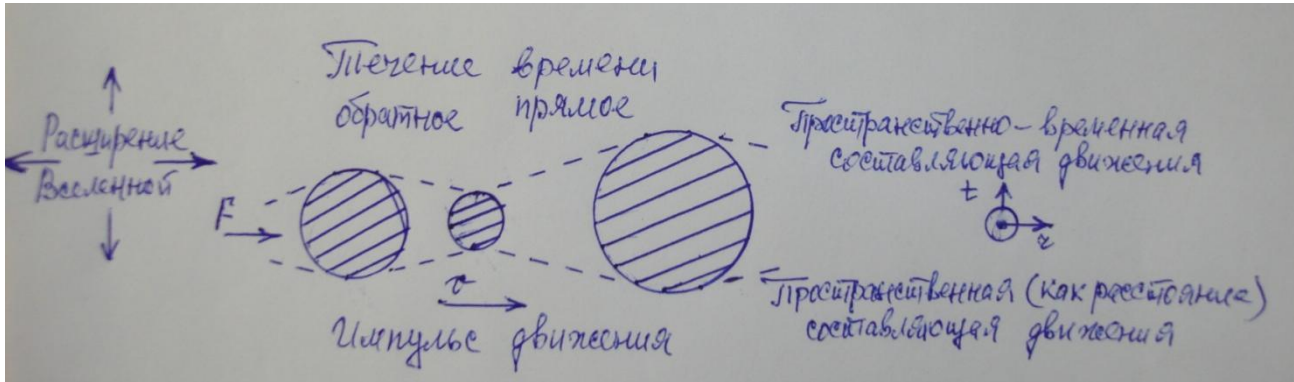 Расширение
Вселенной
Течение времени
обратное прямое
F
v
Импульс движения
Пространственно-временная
составляющая движения
t
r
Пространственная (как расстояние)
составляющая движения